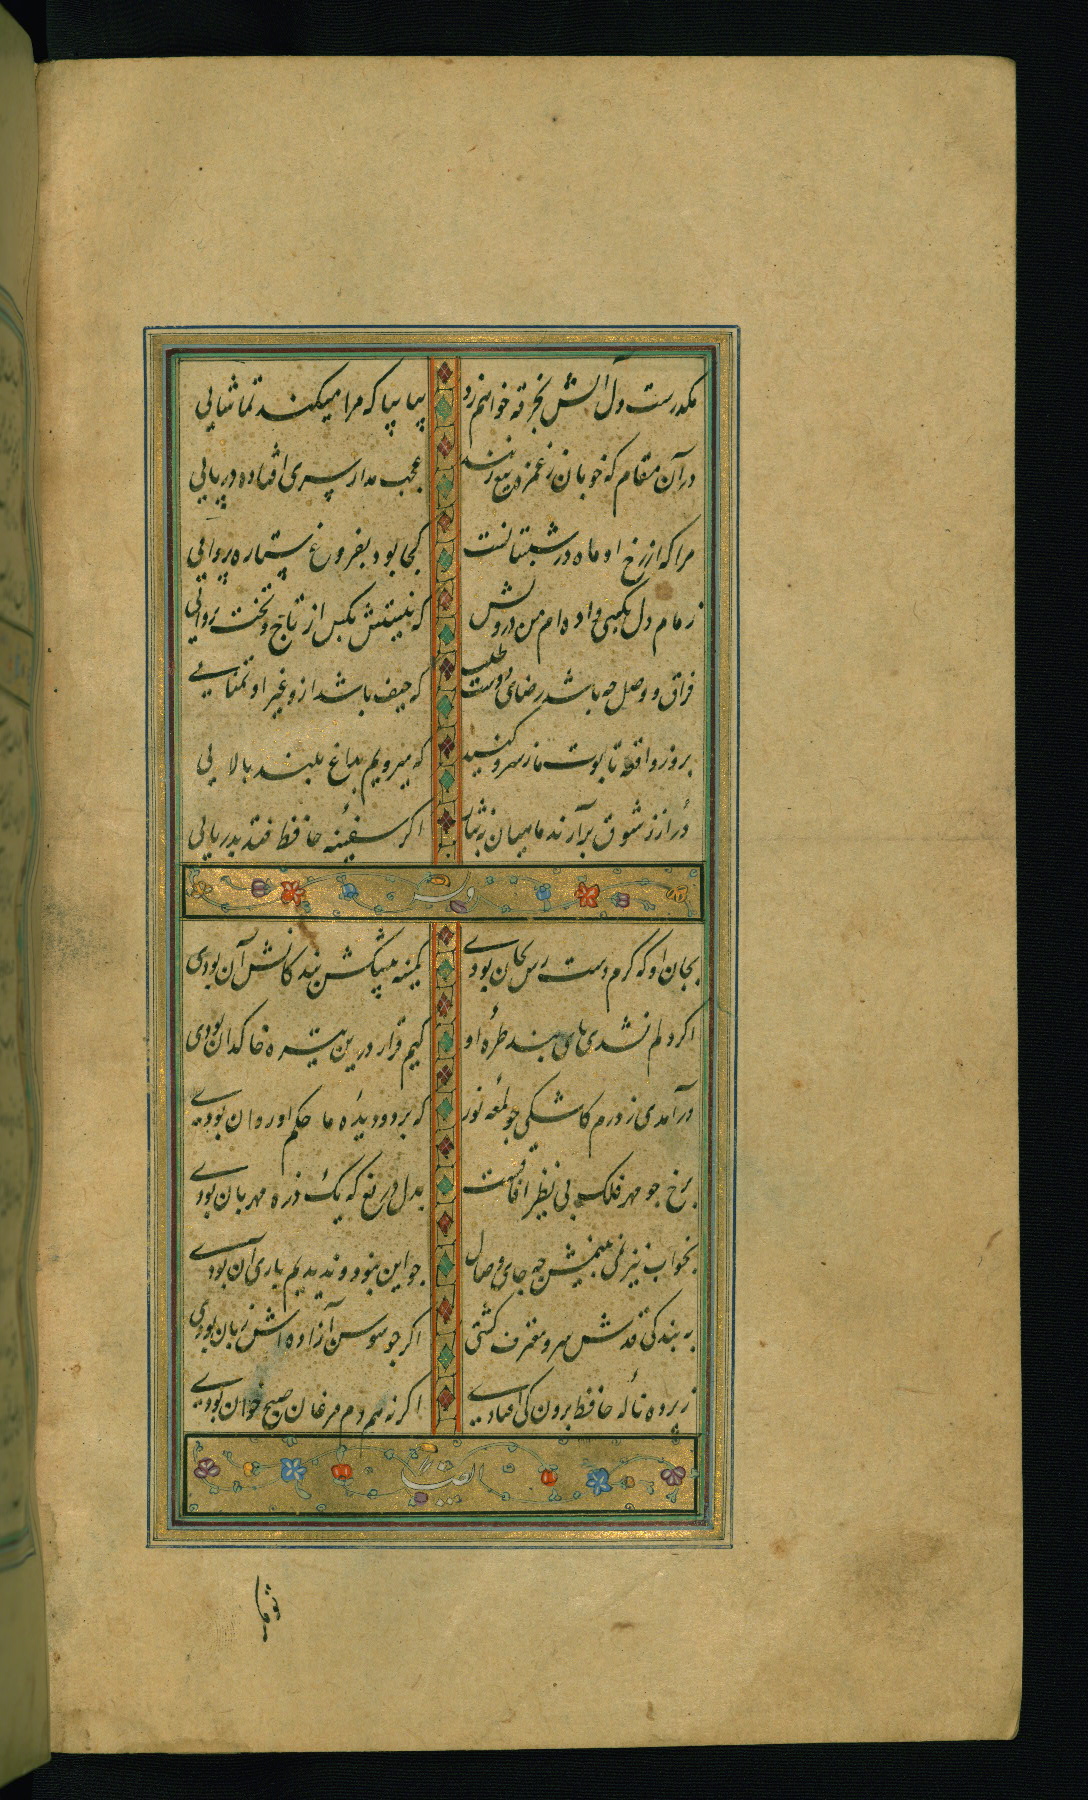 مکدرست دل آتش بخرقه خواهم زد بیا بیا که مرا میکند تماشایی
در آن مقام که خوبان ز غمزه تیغ زنند عجب مدار سری اوفتاده در پایی
مرا که از رخ او ماه در شبستانست کجا بود بفروغ ستاره پروایی
زمام دل بکسی داده ام من درویش که نیستش بکس از تاج و تخت پروایی
فراق و وصل چه باشد رضای دوست طلب که حیف باشد ازو غیر او تمنایی
بروز واقعه تابوت ما ز سرو کنید که میرویم بداغ بلند بالایی
درر ز شوق برآرند ماهیان به نثار اگر سفینه حافظ فتد بدریایی
وله
بجان او که گرم دسترس بجان بودی کمینه پیشکش بندگانش آن بودی
اگر دلم نشدی پای بند طره او کیم قرار درین تیره خاکدان بودی
درآمدی ز درم کاشکی چو لمعه نور که بر دو دیده ما حکم او روان بودی
برخ چو مهر فلک بی نظیر آفاقست بدل دریغ که یک ذره مهربان بودی
بخواب نیز نمی بینمش چه جای وصال چو این نبود و ندیدیم باری آن بودی
به بندگی قدش سرو معترف گشتی اگر چو سوسن آزاده اش زبان بودی
ز پرده ناله حافظ برون کی افتادی اگر نه همدم مرغان صبح خوان بودی
ایضا